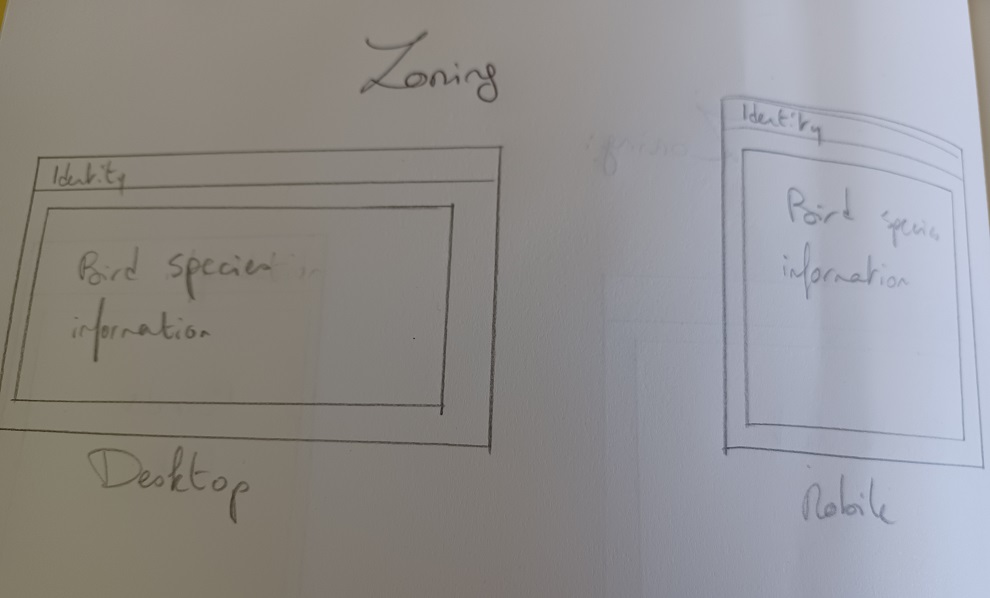 Zoning
Identity
Bird species
information
Desktop
Identity
Bird species
information
Mobile